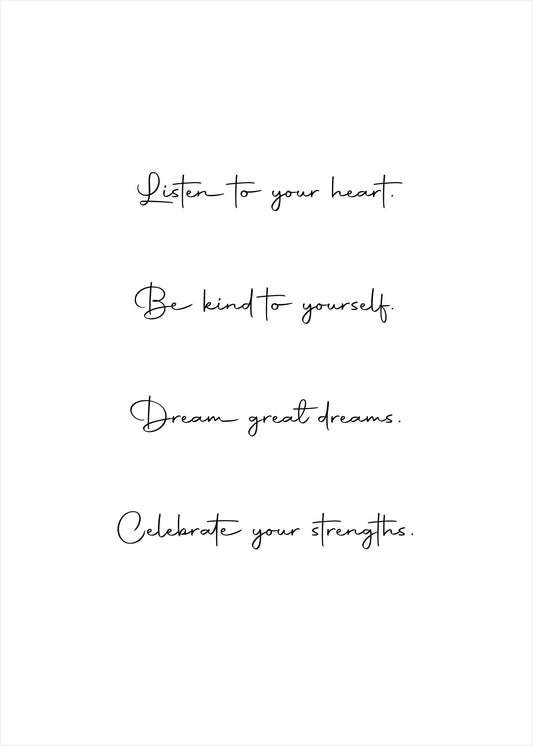 Listen to your heart.
Be kind to yourself.
Dream great dreams.
Celebrate your strengths.